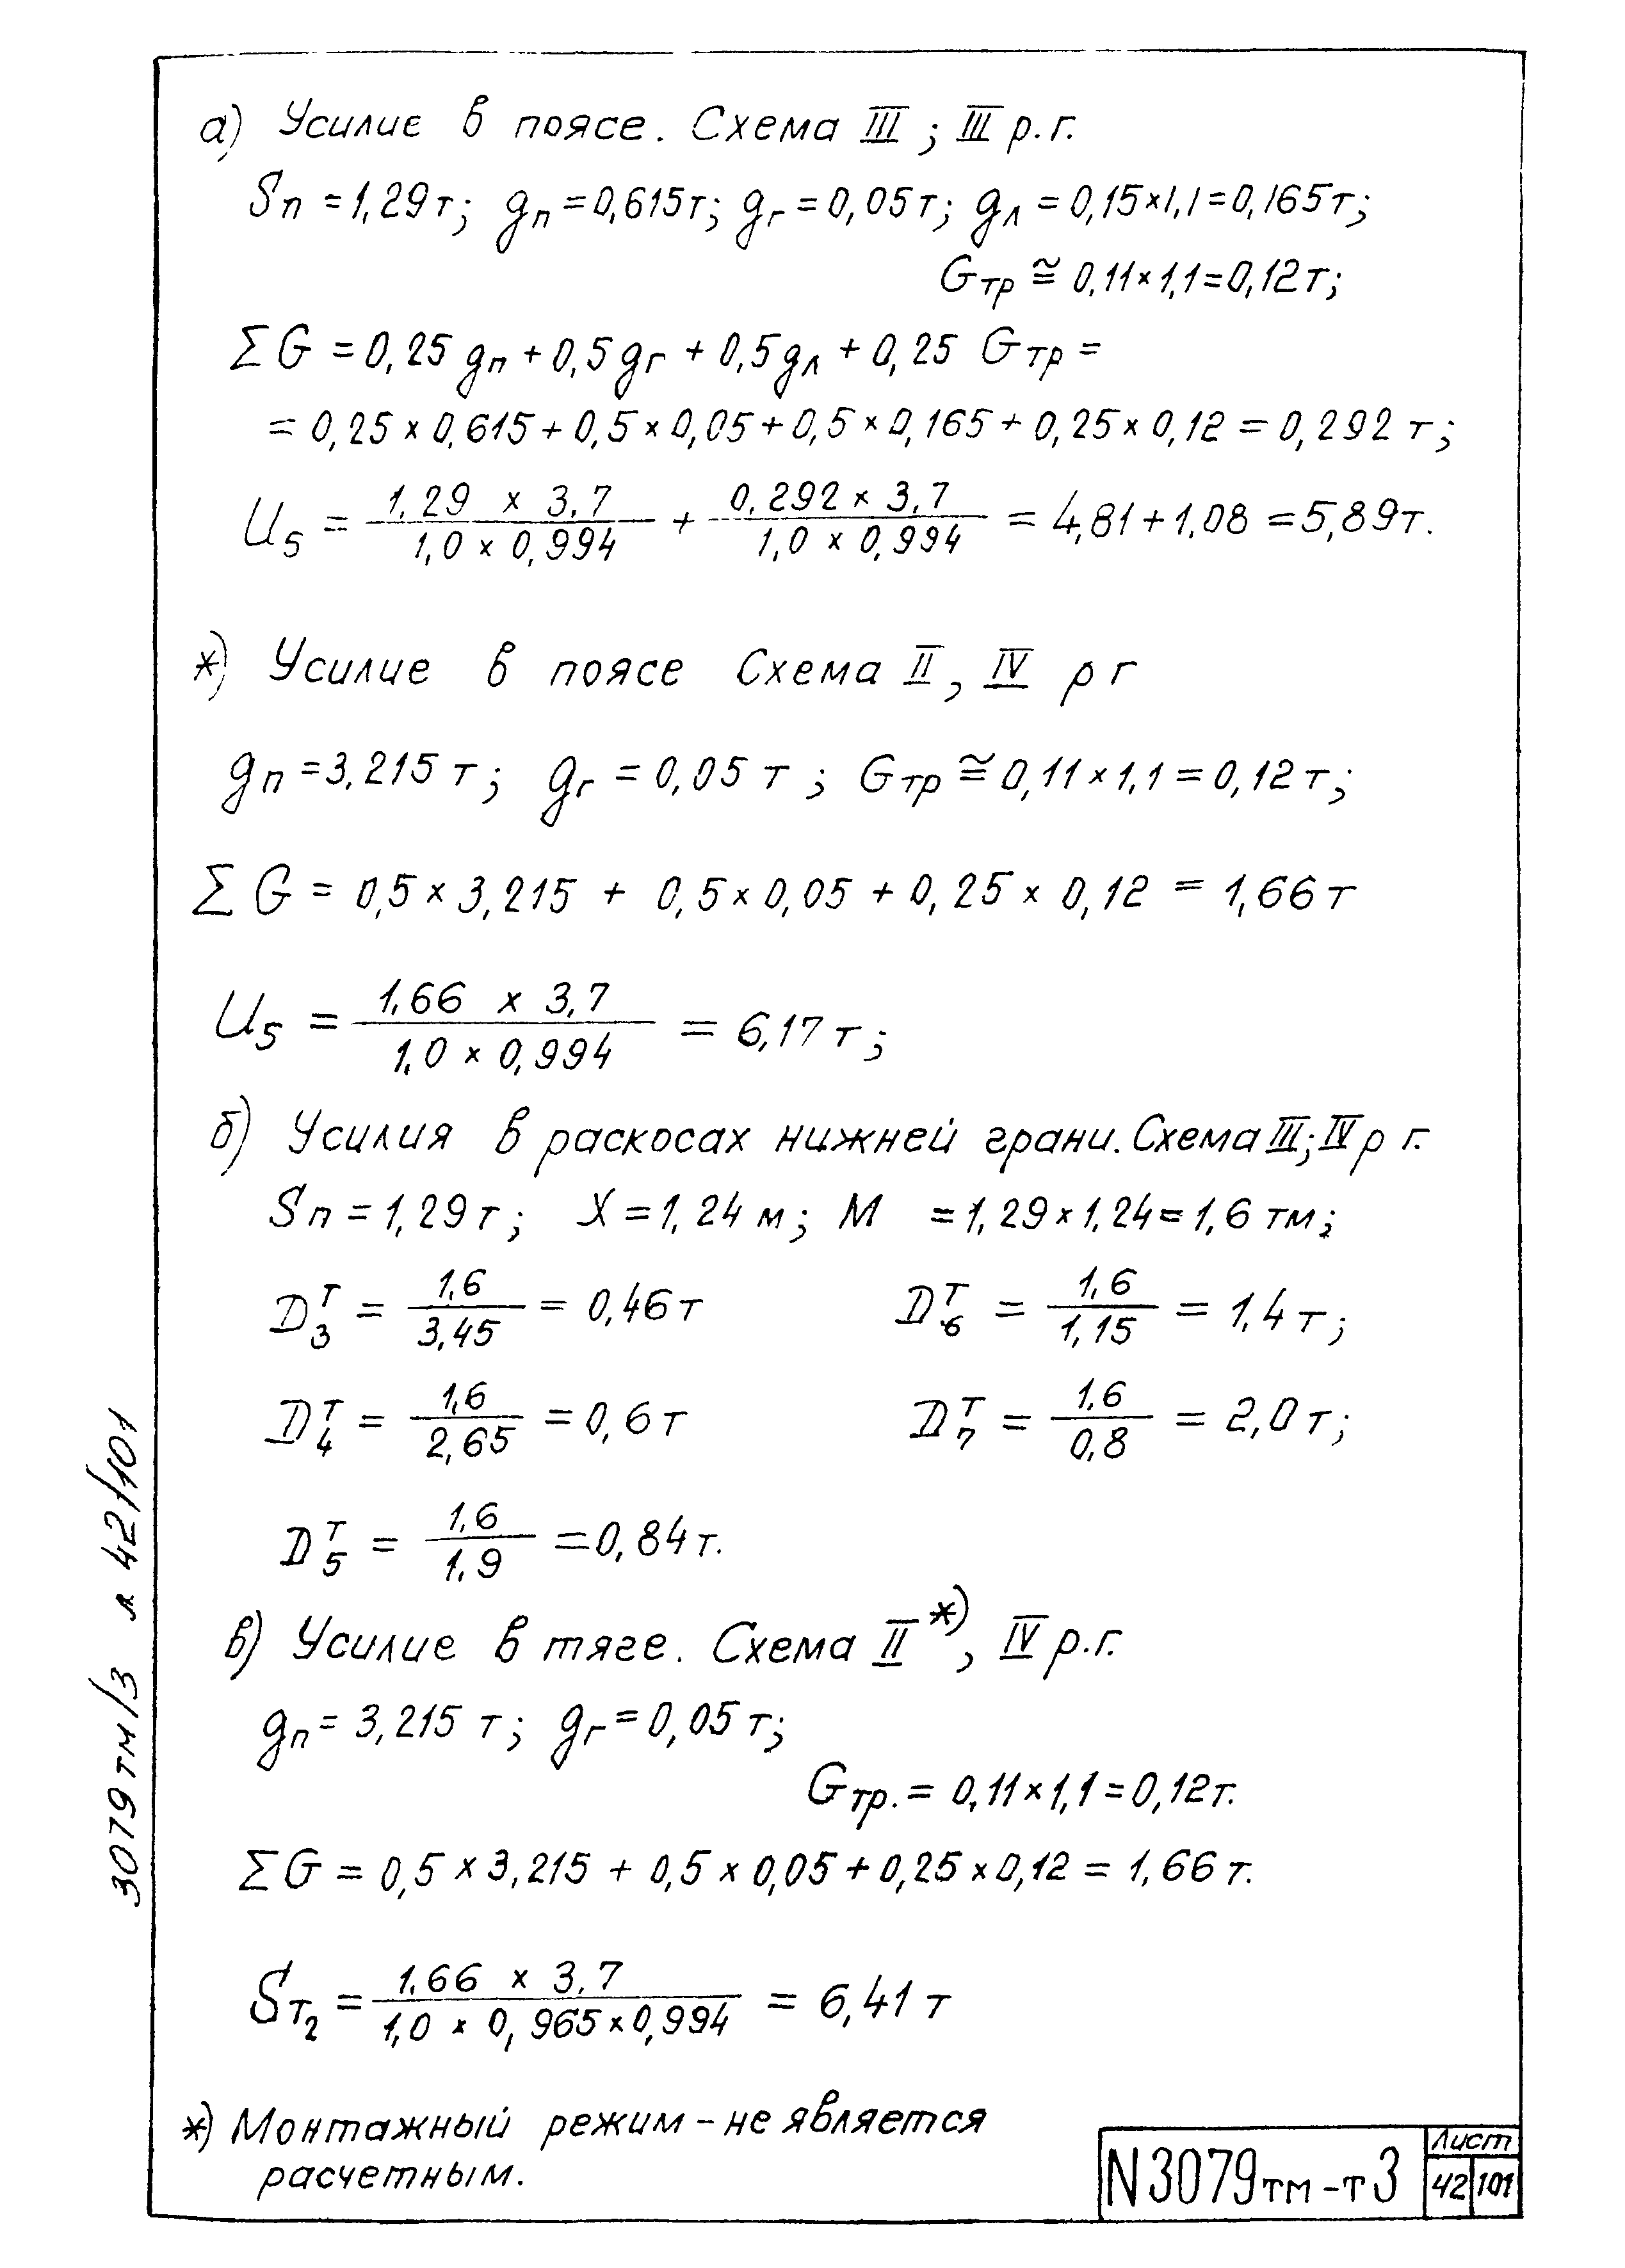 а) Усилие в поясе. Схема III ; III р.г.
Sп = 1,29т; gп = 0,615т; gг = 0,05т; gл = 0,15×1,1 = 0,165т;
Gтр ≅ 0,11×1,1 = 0,12т;
ΣG = 0,25 gп + 0,5 gг + 0,5 gл + 0,25 Gтр =
= 0,25 × 0,615 + 0,5 × 0,05 + 0,5 × 0,165 + 0,25 × 0,12 = 0,292 т;
U5 = (1,29 × 3,7)/(1,0 × 0,994) + (0,292 × 3,7)/(1,0 × 0,994) = 4,81 + 1,08 = 5,89т.
*) Усилие в поясе Схема II, IV р г
gп = 3,215 т; gг = 0,05 т ; Gтр ≅ 0,11 × 1,1 = 0,12 т;
ΣG = 0,5 × 3,215 + 0,5 × 0,05 + 0,25 × 0,12 = 1,66 т
U5 = (1,66 × 3,7)/(1,0 × 0,994) = 6,17 т;
б) Усилия в раскосах нижней грани. Схема III; IV р г.
Sп = 1,29т; X = 1,24 м; М = 1,29 × 1,24 = 1,6 тм;
D₃ᵀ = 1,6/3,45 = 0,46 т D₆ᵀ = 1,6/1,15 = 1,4 т;
D₄ᵀ = 1,6/2,65 = 0,6 т D₇ᵀ = 1,6/0,8 = 2,0 т;
D₅ᵀ = 1,6/1,9 = 0,84 т.
в) Усилие в тяге. Схема II*), IV р.г.
gп = 3,215 т; gг = 0,05 т;
Gтр. = 0,11 × 1,1 = 0,12т.
ΣG = 0,5 × 3,215 + 0,5 × 0,05 + 0,25 × 0,12 = 1,66 т.
Sт2 = (1,66 × 3,7)/(1,0 × 0,965 × 0,994) = 6,41 т
*) Монтажный режим - не является
расчетным.
3079тм/3 л 42/101
N3079тм-т3
Лист
42 101